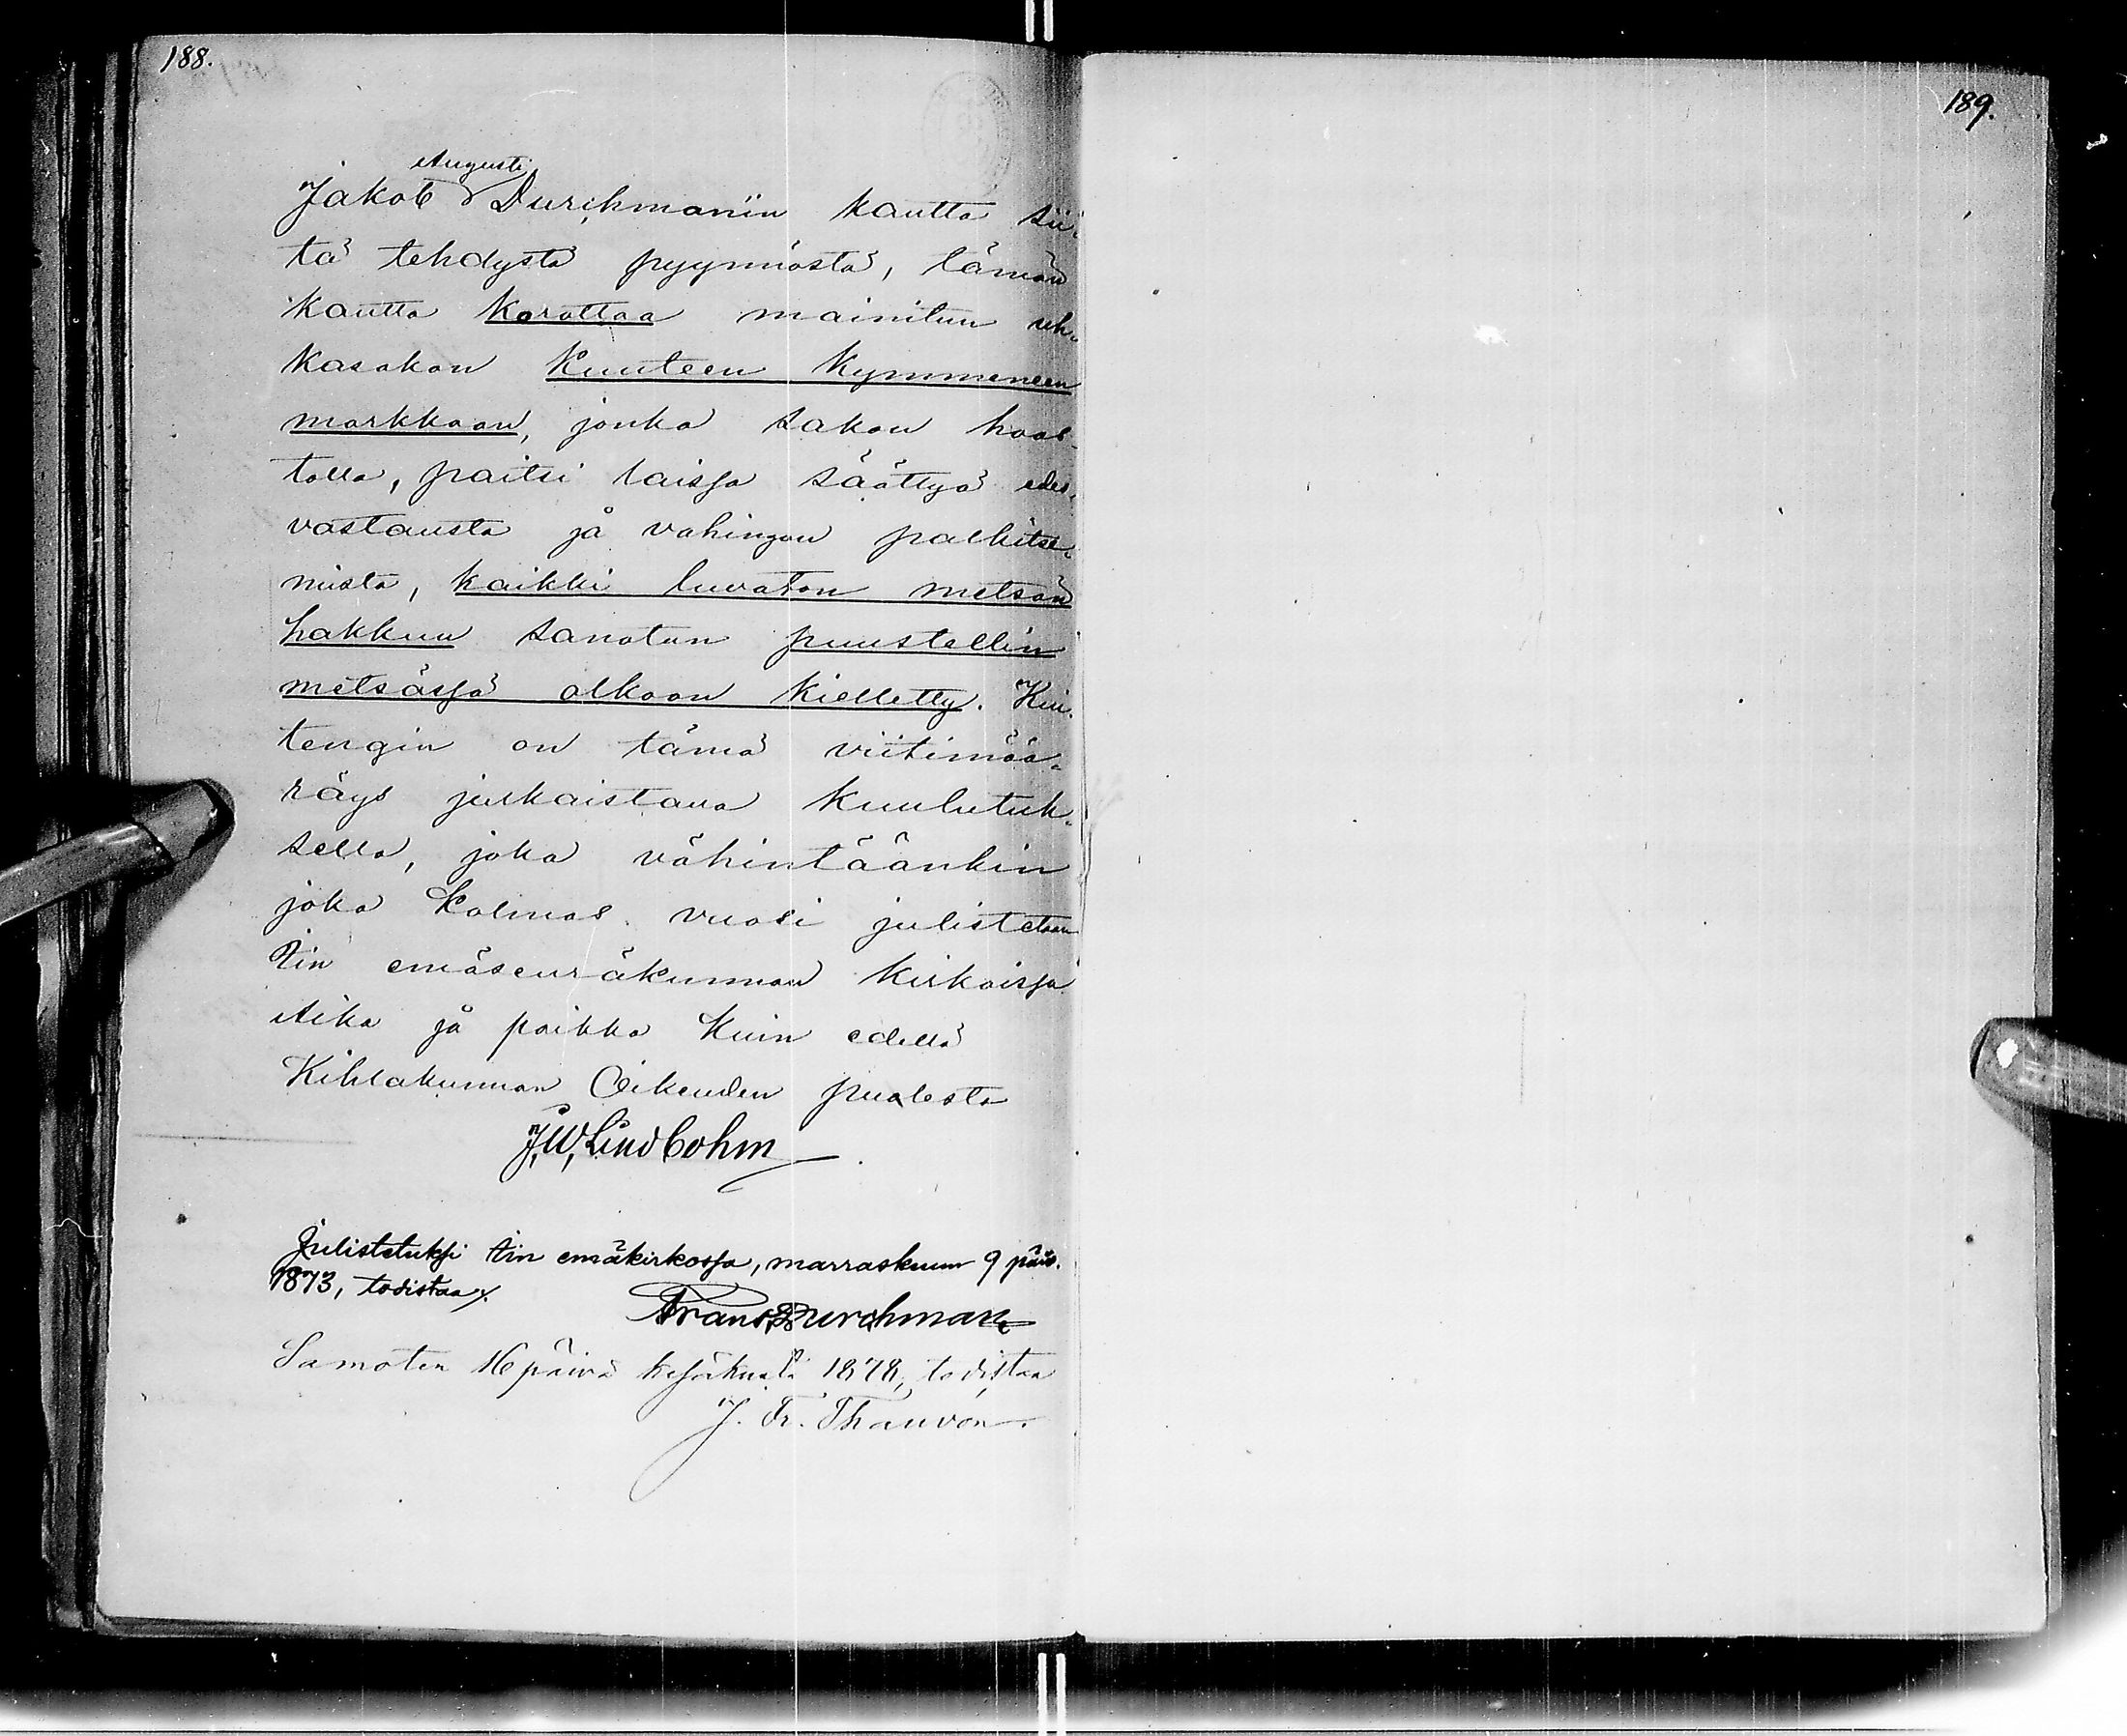 188.
189.
Augusti
Jakob Durchmanin kautta sii-
tä tehdystä pyynnöstä, tämän
kautta korottaa mainitun uh-
kasakon kuuteen kymmeneen
markkaan, jonka sakon haas-
tolla, paitsi laissa säättyä edes-
vastausta ja vahingon palkitse-
mista, kaikki luvaton metsän
hakkuu sanotun puustellin
metsässä olkoon kielletty. Kui-
tengin on tämä viitimää-
räys julkaistava kuulutuk-
sella, joka vähintäänkin
joka kolmas vuosi julistetaan
Iin emäseuräkunnan kirkoissa
Aika ja paikka kuin edellä
Kihlakunnan Oikeuden puolesta
J, W, Lindbohm
Julistetuksi Iin emäkirkossa, marraskuun 9 päiv.
1873, todistaa
Frans Durchman
Samoten 16 päivä kesäkuuta 1878, todistaa
J. Fr. Thauvón.